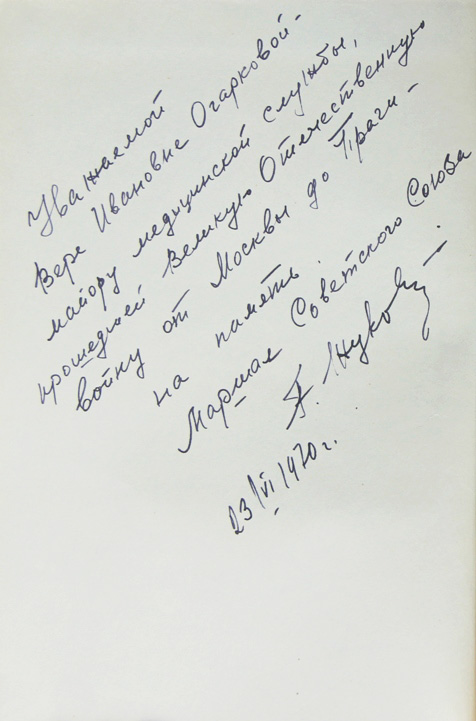 Уважаемой
Вере Ивановне Огарковой-
майору медицинской службы,
прошедшей Великую Отечественную
войну от Москвы до Праги -
на память.
Маршал Советского Союза
Г. Жуков
23/VI 1970г.